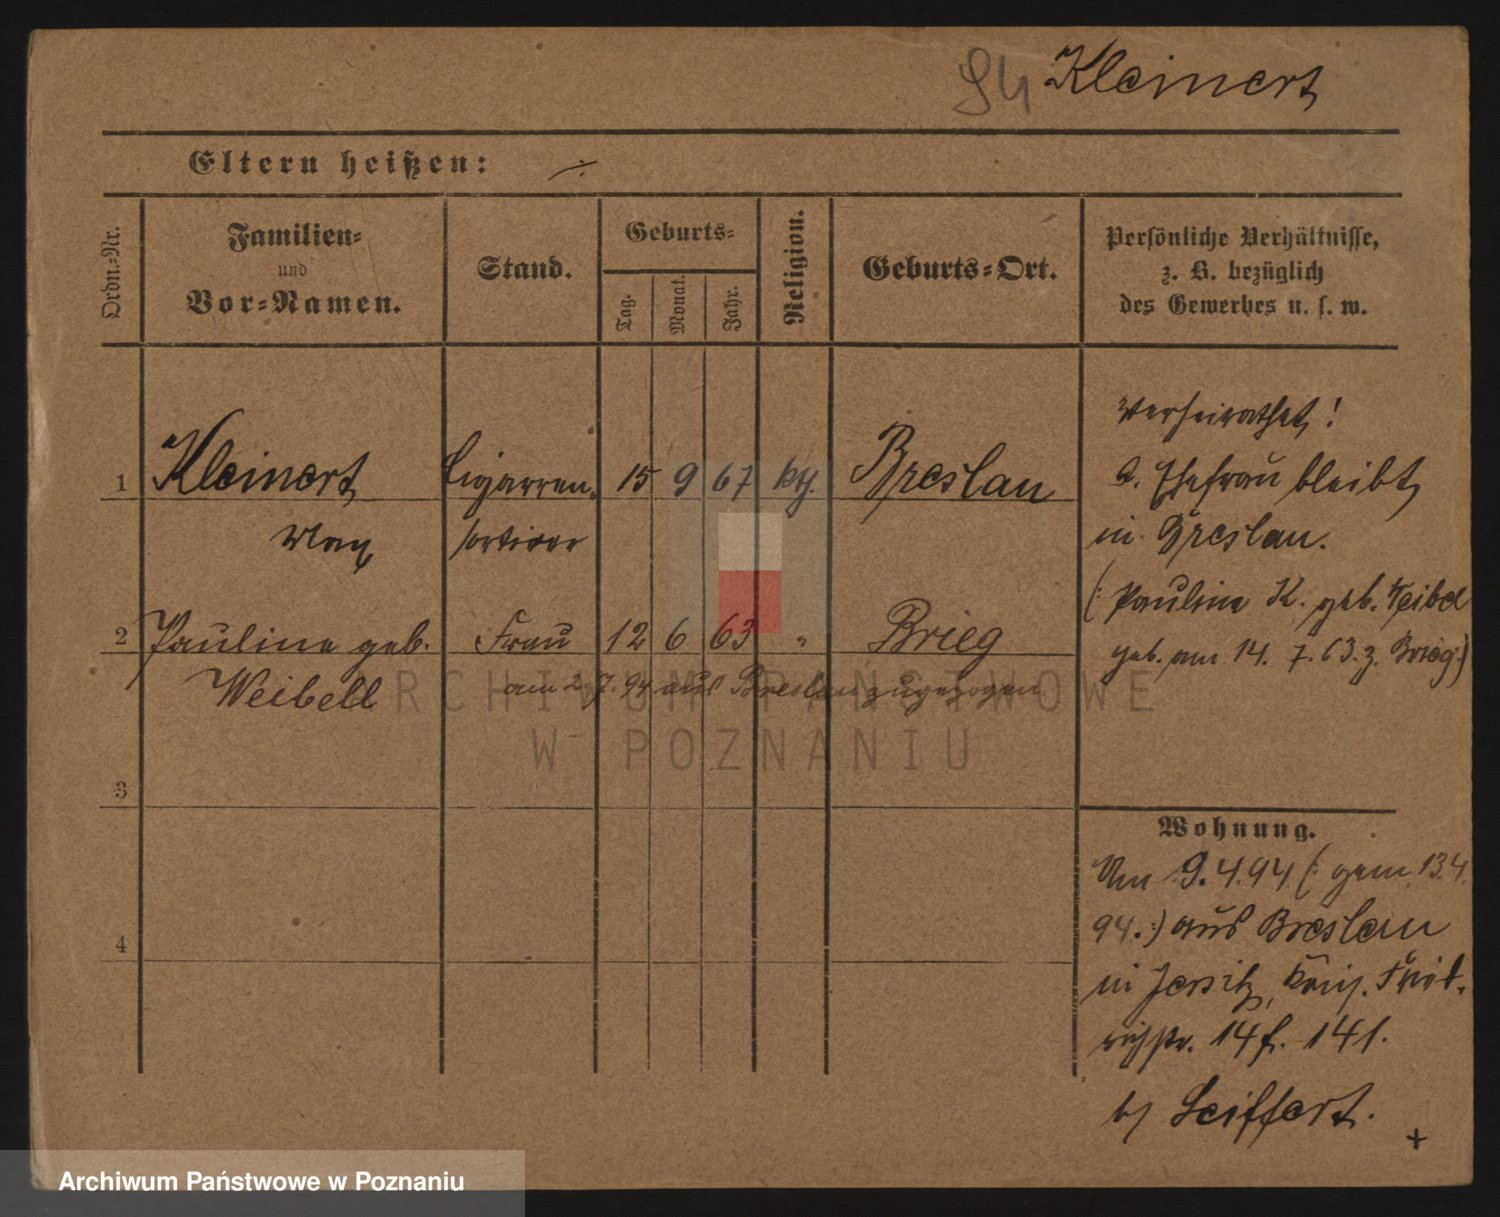 94 Kleinert
Eltern heißen: ÷
Ordn.-Nr.
Familien-
und
Vor-Namen.
Stand.
Geburts-
Tag.
Monat.
Jahr.
Religion.
Geburts-Ort.
Persönliche Verhältnisse,
z. B. bezüglich
des Gewerbes u. s. w.
1 Kleinert Cigarren- 15 9 67 kth. Breslau
Max sortirer
2 Pauline geb. Frau 12 6 63 " Brieg
Weibell am 2.7.94 aus Breslau zugezogen
3
4
Verheirathet!
d. Ehefrau bleibt
in Breslau.
(: Pauline K. geb.
geb. am 14. 7. 63. z. Brieg:)
Wohnung.
Am 9.4.94 (: gem. 13.4.
94.:) aus Breslau
in Jersitz, König. Fried-
richstr. 14f. 141.
b/ Seiffert.
+
ARCHIWUM PAŃSTWOWE
W POZNANIU
Archiwum Państwowe w Poznaniu